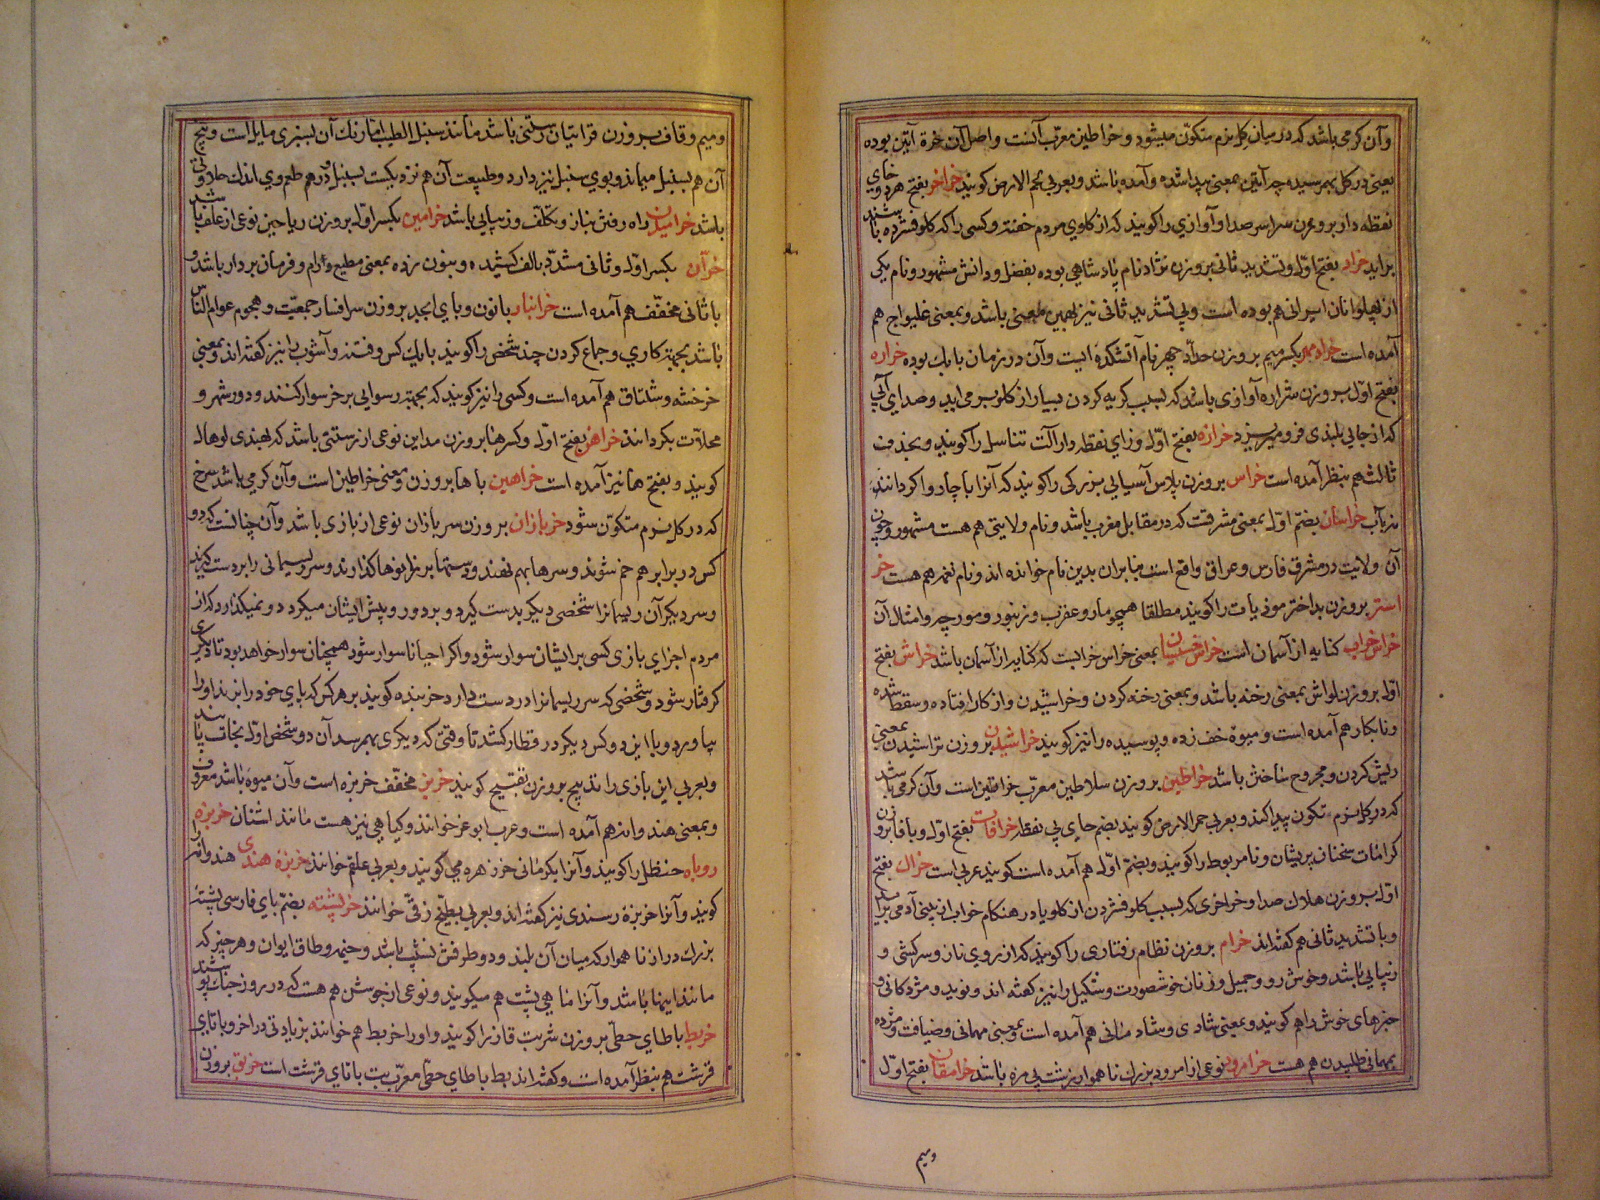 وآن کرمی باشد که درمیان کل نرم متکوّن میشود و خراطین معرّب آنست واصل آن خره آتین بوده
یعنی در کل بهم رسیده چه آتین بمعنی پیدا شده وآمده باشد وبعربی شحم الارض کویند خراخر بفتح هر دو خای
نقطه دار بر وزن سراسر صدا وآوازی را کویند که از کلوی مردم خفته وکسی را که کلو فشرده باشند
براید خراد بفتح اوّل وتشدید ثانی بروزن نژاد نام پادشاهی بوده بفضل ودانش مشهور ونام یکی
از پهلوانان ایرانی هم بوده است وبی تشدید ثانی نیز بهمین معنی باشد وبمعنی غلیواج هم
آمده است خرادمهر بکسر میم بر وزن حدّاد چهر نام آتشکده ایست وآن در زمان بابک بوده خراره
بفتح اوّل بر وزن شراره آوازی باشد که بسبب کریه کردن بسیار از کلو برمی اید وصدای آبی
که از جایی بلندی فرو میریزد خرازه بفتح اوّل وزای نقطه دار آلت تناسل را کویند وبحذف
ثالث هم بنظر آمده است خراس بر وزن پلاس آسیایی بزرکی را کویند که آنرا با چاروا کردانند
نه باب خراسان بضمّ اوّل بمعنی مشرقست که در مقابل مغرب باشد ونام ولایتی هم هست مشهور وچون
آن ولایت در مشرق فارس وعراق واقع است بنابران بدین نام خوانده اند ونام نغمه هم هست خر
استر بر وزن بداختر موذیات را کویند مطلقا همچو مار وعقرب وزنبور ومورچه وامثال آن
خراس خراب کنایه از آسمان است خراس خسیسان بمعنی خراس خرابست که کنایه از آسمان باشد خراش بفتح
اوّل بر وزن لواش بمعنی رخنه باشد وبمعنی رخنه کردن وخراشیدن واز کار افتاده وسقط شده
ونابکار هم آمده است ومیوهٔ خف زده وپوسیده را نیز کویند خراشیدن بر وزن تراشیدن بمعنی
ریش کردن ومجروح ساختن باشد خراطین بر وزن سلاطین معرّب خراتین است وآن کرمی باشد
که در کل نرم تکون پیدا کند وبعربی حمر الارض کویند بضم حای بی نقطه خرافات بفتح اوّل وبا فا بر وزن
کرامات سخنان پریشان ونامربوط را کویند وبضمّ اوّل هم آمده است کویند عربی است خراک بفتح
اوّل بر وزن هلاک صدا وخراخری که بسبب کلو فشردن از کلو یا در هنکام خواب از بینی آدمی براید
وبا تشدید ثانی هم کفته اند خرام بر وزن نظام رفتاری را کویند که از روی ناز وسرکشی و
زیبایی باشد وخوش رو وجمیل وزنان خوشصورت وشکیل را نیز کفته اند ونوید ومژدکانی و
خبرهای خوش را هم کویند وبمعنی شادی وشادمانی هم آمده است وبمعنی مهمانی وضیافت ومژده
بمهمانی طلبیدن هم هست خرامروت نوعی از امرود بزرک ناهموار زشت بی مزه باشد خرامقان بفتح اوّل
ومیم
ومیم وقاف بر وزن قراتیان رستنی باشد مانند سنبل الطیب امّا رنک آن بسبزی مایل است وبیخ
آن هم بسنبل میماند وبوی سنبل نیز دارد وطبیعت آن هم نزدیکست بسنبل ودر هم طعم وی اندک حلاوتی
باشد خرامیدن راه رفتن بناز وتکلّف وزیبایی باشد خرامین بکسر اوّل بر وزن ریاحین نوعی از علف باشد
خرّان بکسر اوّل وثانی مشدّد بالف کشیده وبنون زده بمعنی مطیع ورام وفرمان بردار باشد و
با ثانی مخفّف هم آمده است خرانبار با نون وبای ابجد بر وزن سرافسار جمعیّت وهجوم عوام النّاس
باشد بجهت کاری وجماع کردن چند شخص را کویند با یک کس وفتنه وآشوب را نیز کفته اند وبمعنی
خرخشه وشلتاق هم آمده است وکسی را نیز کویند که بجهت رسوایی بر خر سوار کنند ودور شهر و
محلّات بکردانند خراهن بفتح اوّل وکسر ها بر وزن مداین نوعی از رستنی باشد که بهندی لوهالد
کویند وبفتح ها نیز آمده است خراهین با ها بر وزن ومعنی خراطین است وآن کرمی باشد سرخ
که در کل نرم متکوّن شود خربازان بر وزن سربازان نوعی از بازی باشد وآن چنانست که دو
کس در برابر هم خم شوند وسرها بهم نهند ودستها بر زانوها کذارند وسر ریسمانی را بر دست کیرند
وسر دیکر آن ریسمانرا شخصی دیکر بدست کیرد وبر دور وپیش ایشان میکردد ونمیکذارد که از
مردم اجزای بازی کسی بر ایشان سوار شود واکر احیانا سوار شود همچنان سوار خواهد بود تا دیکری
کرفتار شود وشخصی که سر ریسمانرا در دست دارد خربنده کویند بر هر کس که پای خود را بزند او را
بیاورد وبا این دو کس دیکر در قطار کشد تا وقتی که دیکری بهم رسد آن دو شخص اوّل نجات یابند
وبعربی این بازی را تدبیح بر وزن تفتیح کویند خربز مخفّف خربزه است وآن میوه باشد معروف
وبمعنی هندوانه هم آمده است وعرب ابو عرخوانند وکیاهی نیز هست مانند اشنان خربزه
روباه حنظل را کویند وآنرا بکرمانی خرزهره می کویند وبعربی علقم خوانند خربزه هندی هندوانه را
کویند وآنرا خربزهٔ رسندی نیز کفته اند وبعربی بطیخ زقّی خوانند خرپشته بضمّ بای فارسی پشتهٔ
بزرک دراز ناهموار که میان آن بلند ودو طرفش نشیب باشد وخیمه وطاق ایوان وهر چیز که
مانند اینها باشد وآنرا ماهی پشت هم میکویند ونوعی از جوشن هم هست که در روز جنک پوشند
خربط با طای حطّی بر وزن شربت قاز را کویند واو را خربط هم خوانند بزیادتی در آخر وبا تای
قرشت هم بنظر آمده است وکفته اند بط با طای حطّی معرّب بت با تای قرشت است خربق بر وزن